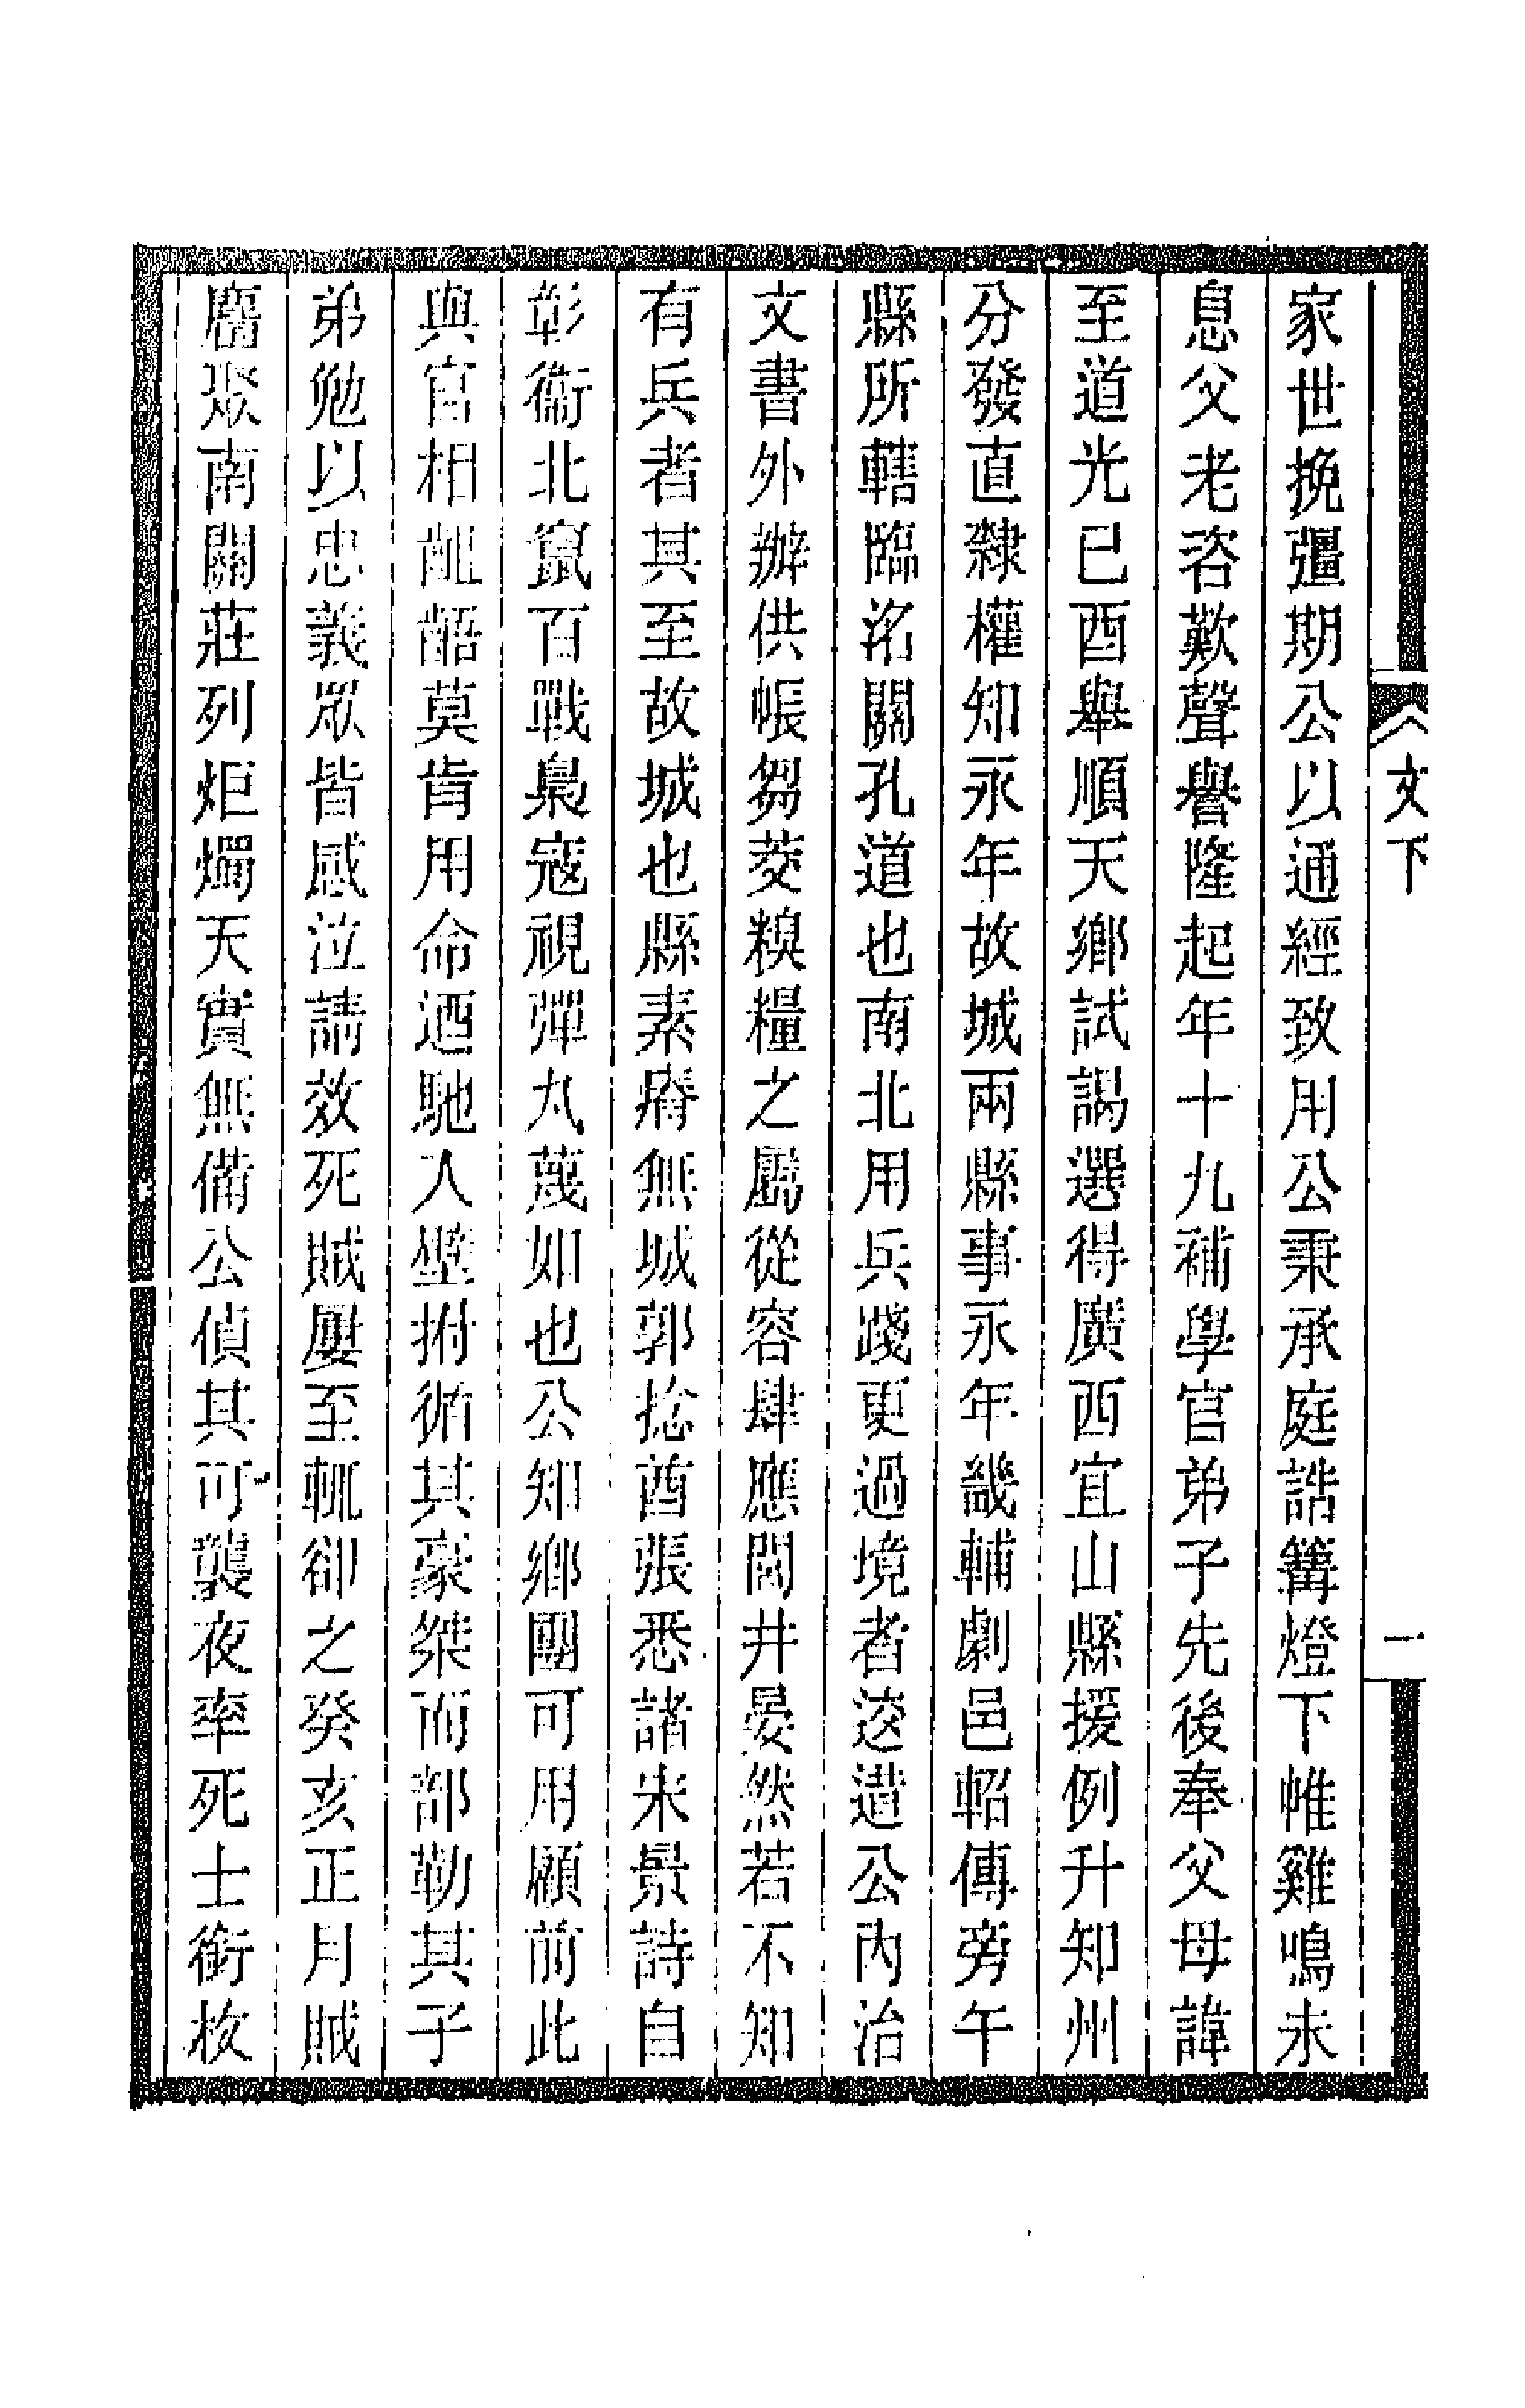 文下
一
家世挽彊期公以通經致用公秉承庭誥篝燈下帷雞鳴未
息父老咨歎聲譽隆起年十九補學官弟子先後奉父母諱
至道光已酉舉順天鄉試謁選得廣西宜山縣援例升知州
分發直隸權知永年故城兩縣事永年畿輔劇邑軺傳旁午
縣所轄臨洺關孔道也南北用兵踐更過境者迻遣公內治
文書外辦供帳芻茭糗糧之屬從容肆應閭井晏然若不知
有兵者其至故城也縣素瘠無城郭捻酋張悉諸朱景詩自
彰衞北竄百戰梟寇視彈丸蔑如也公知鄉團可用顧前此
與官相齟齬莫肯用命迺馳入壁拊循其豪桀而部勒其子
弟勉以忠義眾皆感泣請效死賊屢至輒卻之癸亥正月賊
麕聚南關莊列炬燭天實無備公偵其可襲夜率死士銜枚